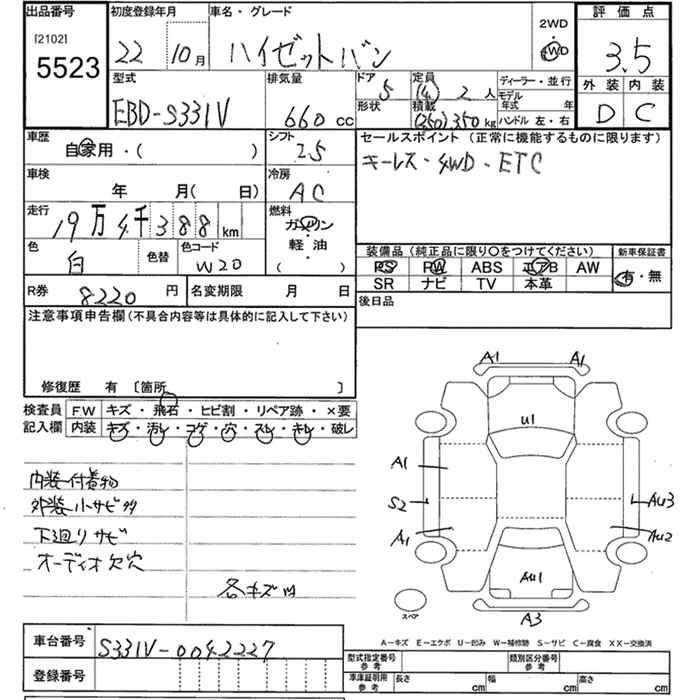 出品番号 初度登録年月 車名・グレード 2WD 4WD 評価点
[2102] 5523 22 10月 ハイゼットバン 3.5
型式 排気量 ドア 定員 ディーラー・並行 外装 内装
EBD-S331V 660cc 5 (4) 2人 モデル年式 年 D C
形状 積載 (250)350kg ハンドル 左・右
車歴 シフト セールスポイント (正常に機能するものに限ります)
自家用・( ) 25 キーレス・4WD・ETC
車検 冷房
年 月( 日) AC
走行 燃料
19万4千388km ガソリン
色 色替 色コード 軽油
白 W20 ( )
装備品(純正品に限り〇をつけてください) 新車保証書
PS PW ABS エアB AW 有・無
SR ナビ TV 本革
R券 8220円 名変期限 月 日 後日品
注意事項申告欄(不具合内容等は具体的に記入して下さい)
修復歴 有 〔箇所 〕
検査員 FW キズ・飛石・ヒビ割・リペア跡・×要
記入欄 内装 キズ・汚レ・コゲ・穴・スレ・キレ・破レ
内装付着物
外装小サビ多
下廻りサビ
オーディオ欠穴
各キズ凹
A1 A1
U1
A1
S2 AU3
A1 AU2
AU1
スペア A3
A-キズ E-エクボ U-凹み W-補修跡 S-サビ C-腐食 XX-交換済
車台番号 S331V-0042227
登録番号
型式指定番号参考 類別区分番号参考
車庫証明用参考 長さ cm 幅 cm 高さ cm